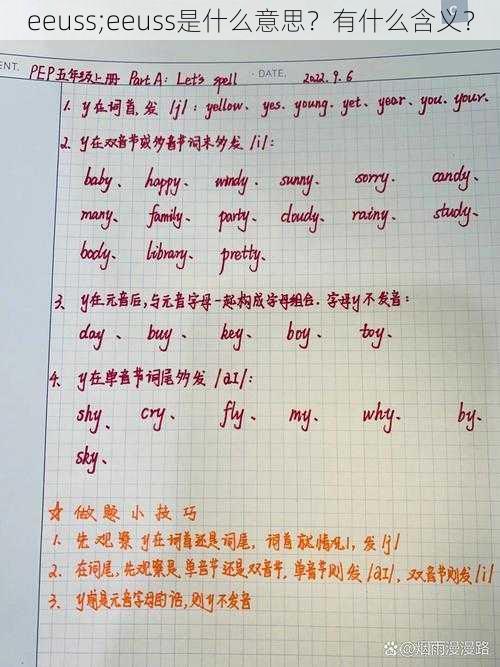 eeuss;eeuss是什么意思？有什么含义？
ENT. PEP五年级上册 Part A: Let's spell · DATE. 2022.9.6
1. y在词首, 发 /j/ : yellow、yes. young. yet. year. you. your.
2. y在双音节或多音节词末多发 /i/:
baby、 happy、 windy、 sunny、 sorry. candy、
many、 family、 party、 cloudy、 rainy、 study、
body、 library、 pretty、
3、y在元音后,与元音字母一起构成字母组合. 字母y不发音:
day 、 buy 、 key、 boy 、 toy、
4、y在单音节词尾多发 /aɪ/:
shy、 cry、 fly、 my、 why、 by、
sky、
☆ 做题小技巧
1. 先观察 y在词首还是词尾, 词首就情况1, 发/j/
2. 在词尾,先观察是单音节还是双音节, 单音节则发/aɪ/、双音节则发/i/
3、y前是元音字母的话,则y不发音
@烟雨漫漫路